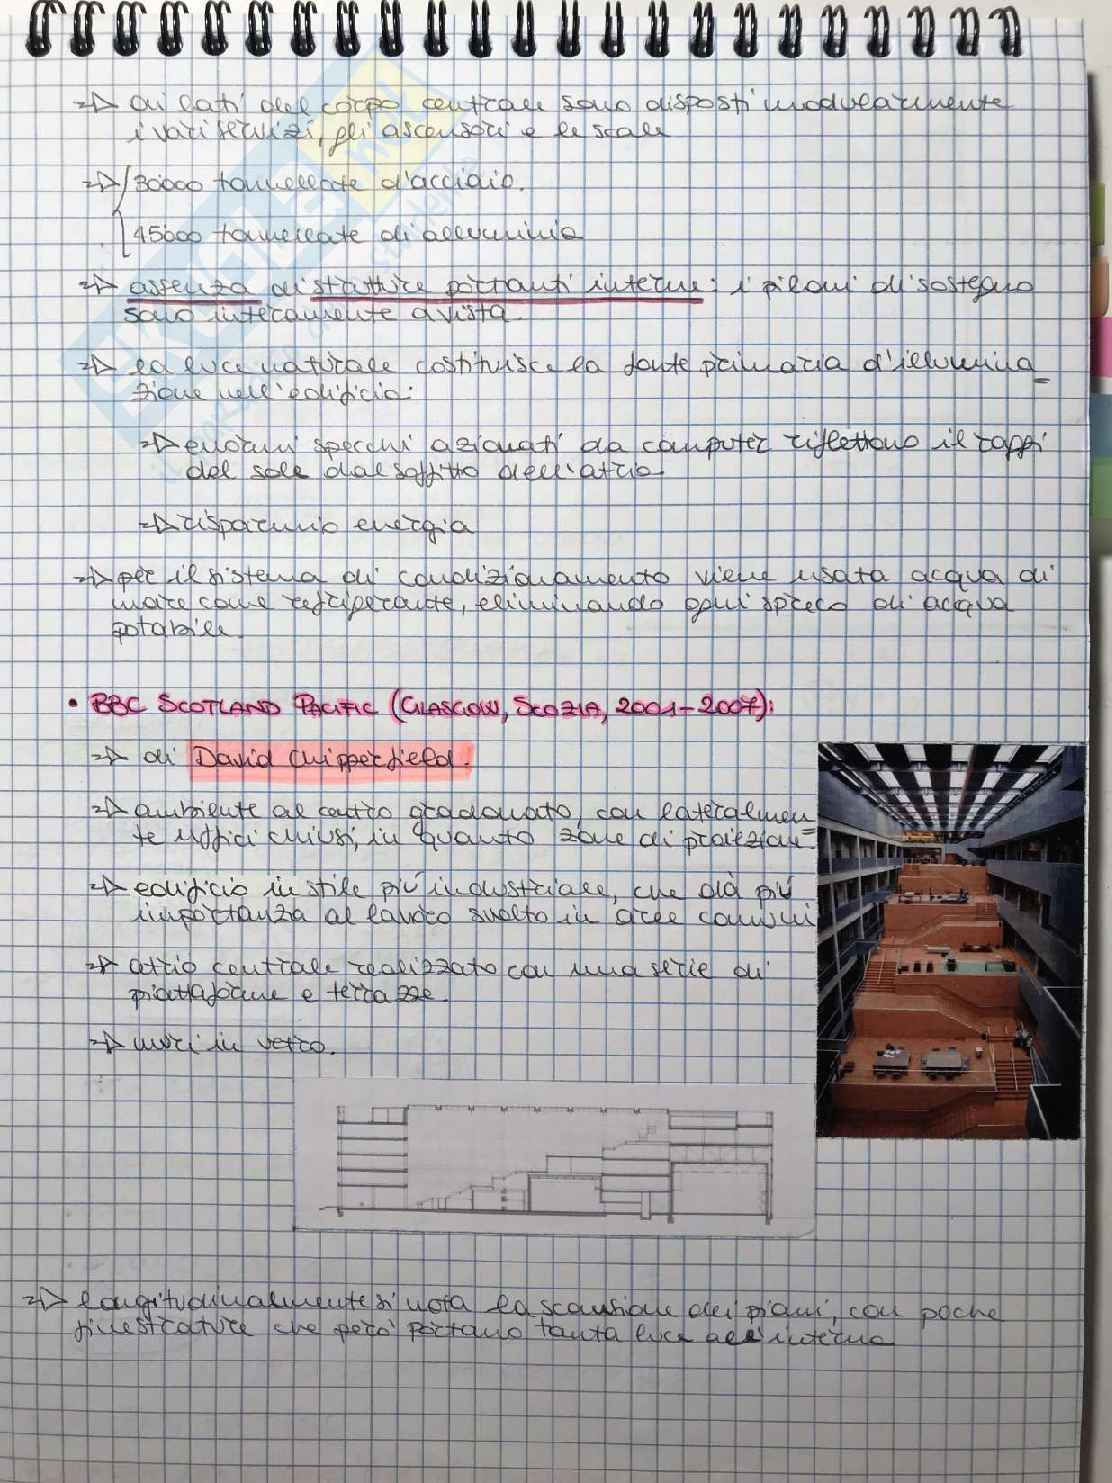 => ai lati del corpo centrale sono disposti modularmente
i vari servizi, gli ascensori e le scale
=> 30000 tonnellate d'acciaio.
45000 tonnellate di alluminio
=> assenza di strutture portanti interne: i piloni di sostegno
sono interamente a vista.
=> la luce naturale costituisce la fonte primaria d'illumina_
zione nell'edificio:
=> enormi specchi azionati da computer riflettono il raggi
del sole dal soffitto dell'atrio
=> risparmio energia
=> per il sistema di condizionamento viene usata acqua di
mare come refrigerante, eliminando ogni spreco di acqua
potabile.
• BBC SCOTLAND PACIFIC (GLASGOW, SCOZIA, 2001-2007):
=> di David Chipperfield.
=> ambiente al centro gradonato, con lateralmen
te uffici chiusi, in quanto zone di proiezione
=> edificio in stile più industriale, che dà più
importanza al lavoro svolto in aree comuni
=> atrio centrale realizzato con una serie di
piattaforme e terrazze.
=> muri in vetro.
=> longitudinalmente si nota la scansione dei piani, con poche
finestrature che però portano tanta luce all'interno